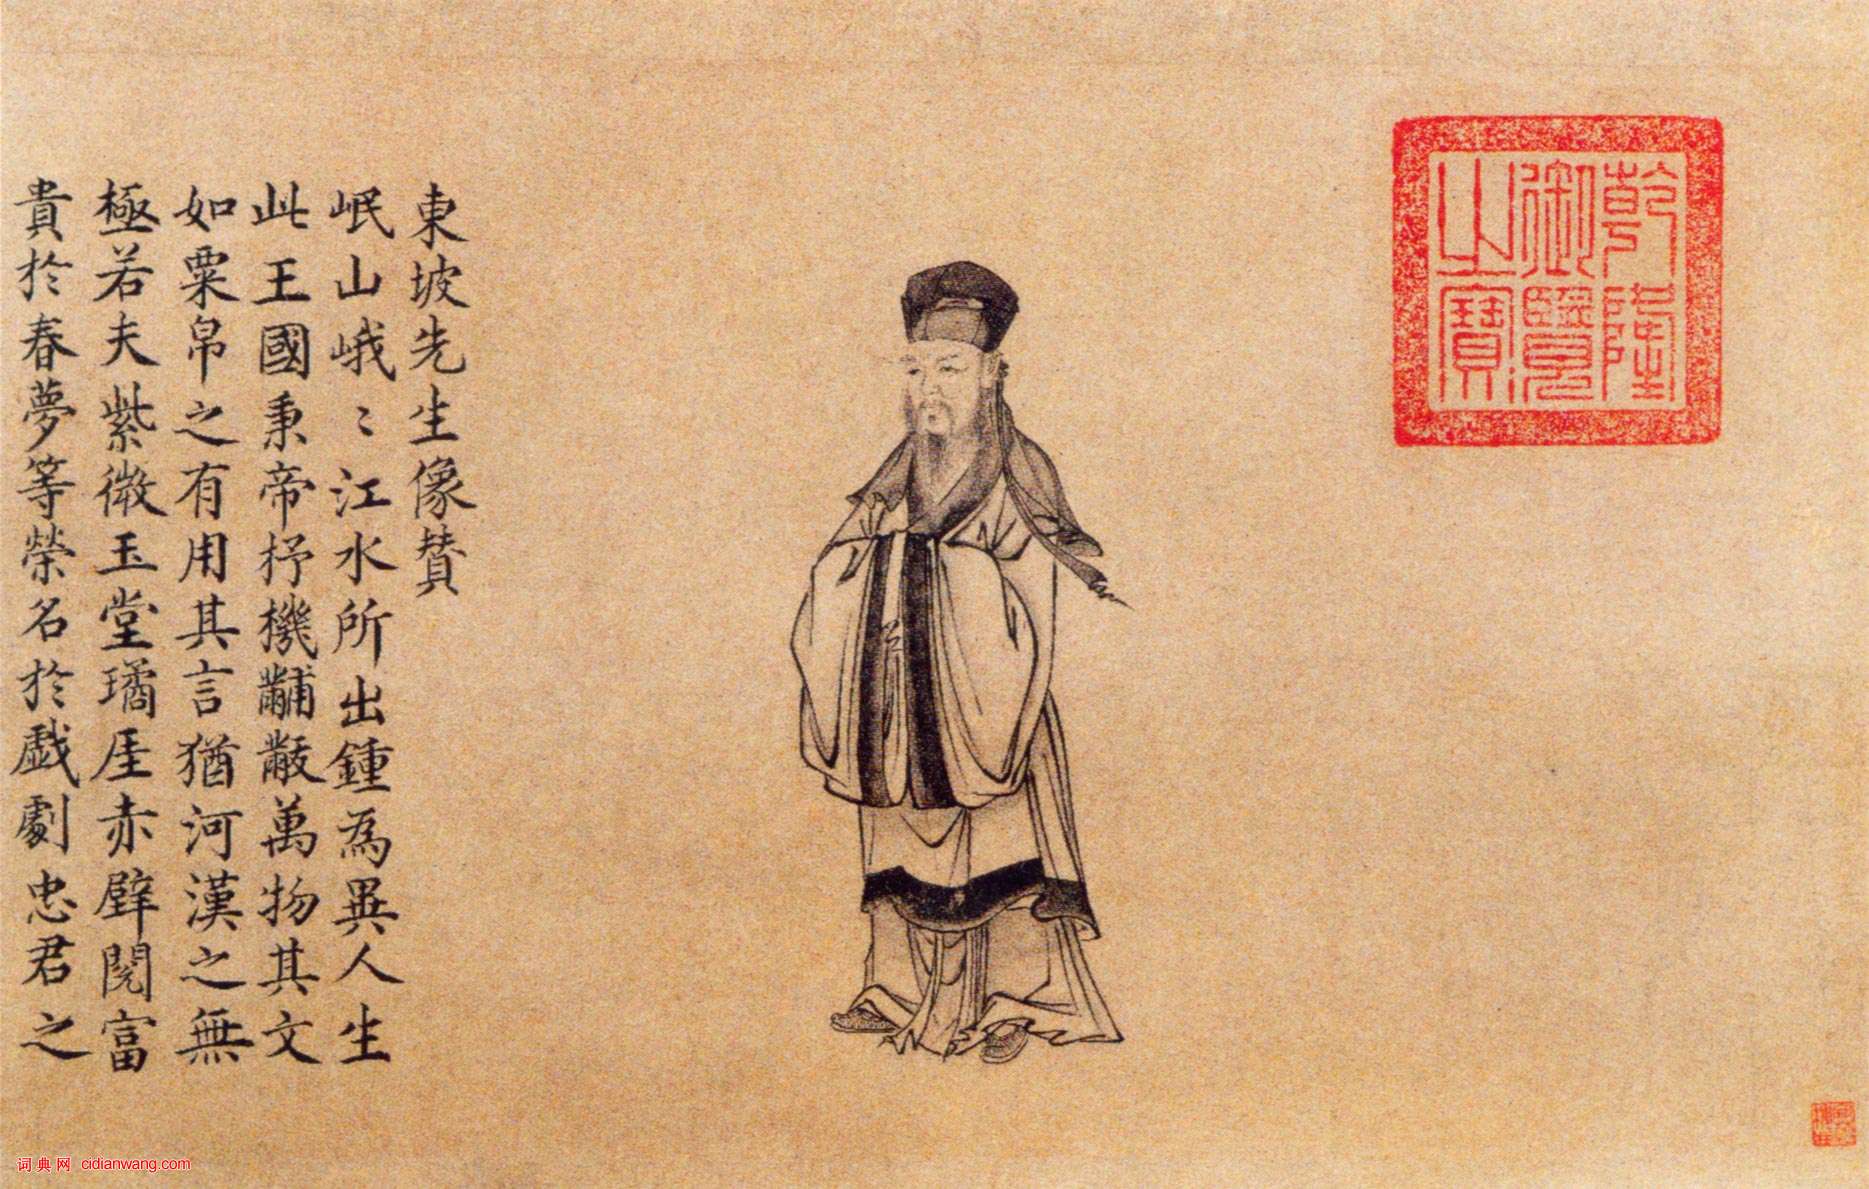 乾隆
御覽
之寶
東坡先生像贊
岷山峨〻江水所出鍾為異人生
此王國秉帝杼機黼黻萬物其文
如粟帛之有用其言猶河漢之無
極若夫紫微玉堂璚厓赤壁閱富
貴於春夢等榮名於戲劇忠君之
词典网 cidianwang.com